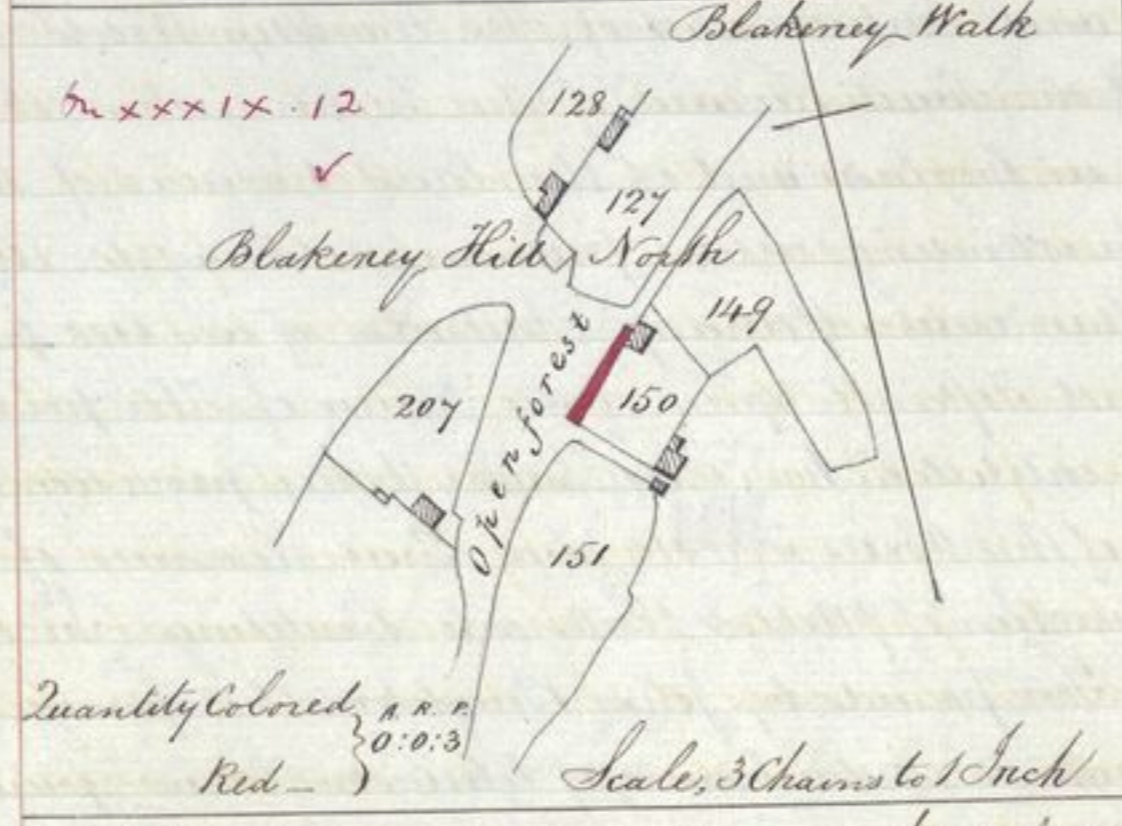 Blakeney Walk
xxxix.12
128
127
Blakeney Hill North
149
Open forest
207
150
151
Quantity Colored
Red
A. R. P.
0:0:3
Scale, 3 Chains to 1 Inch